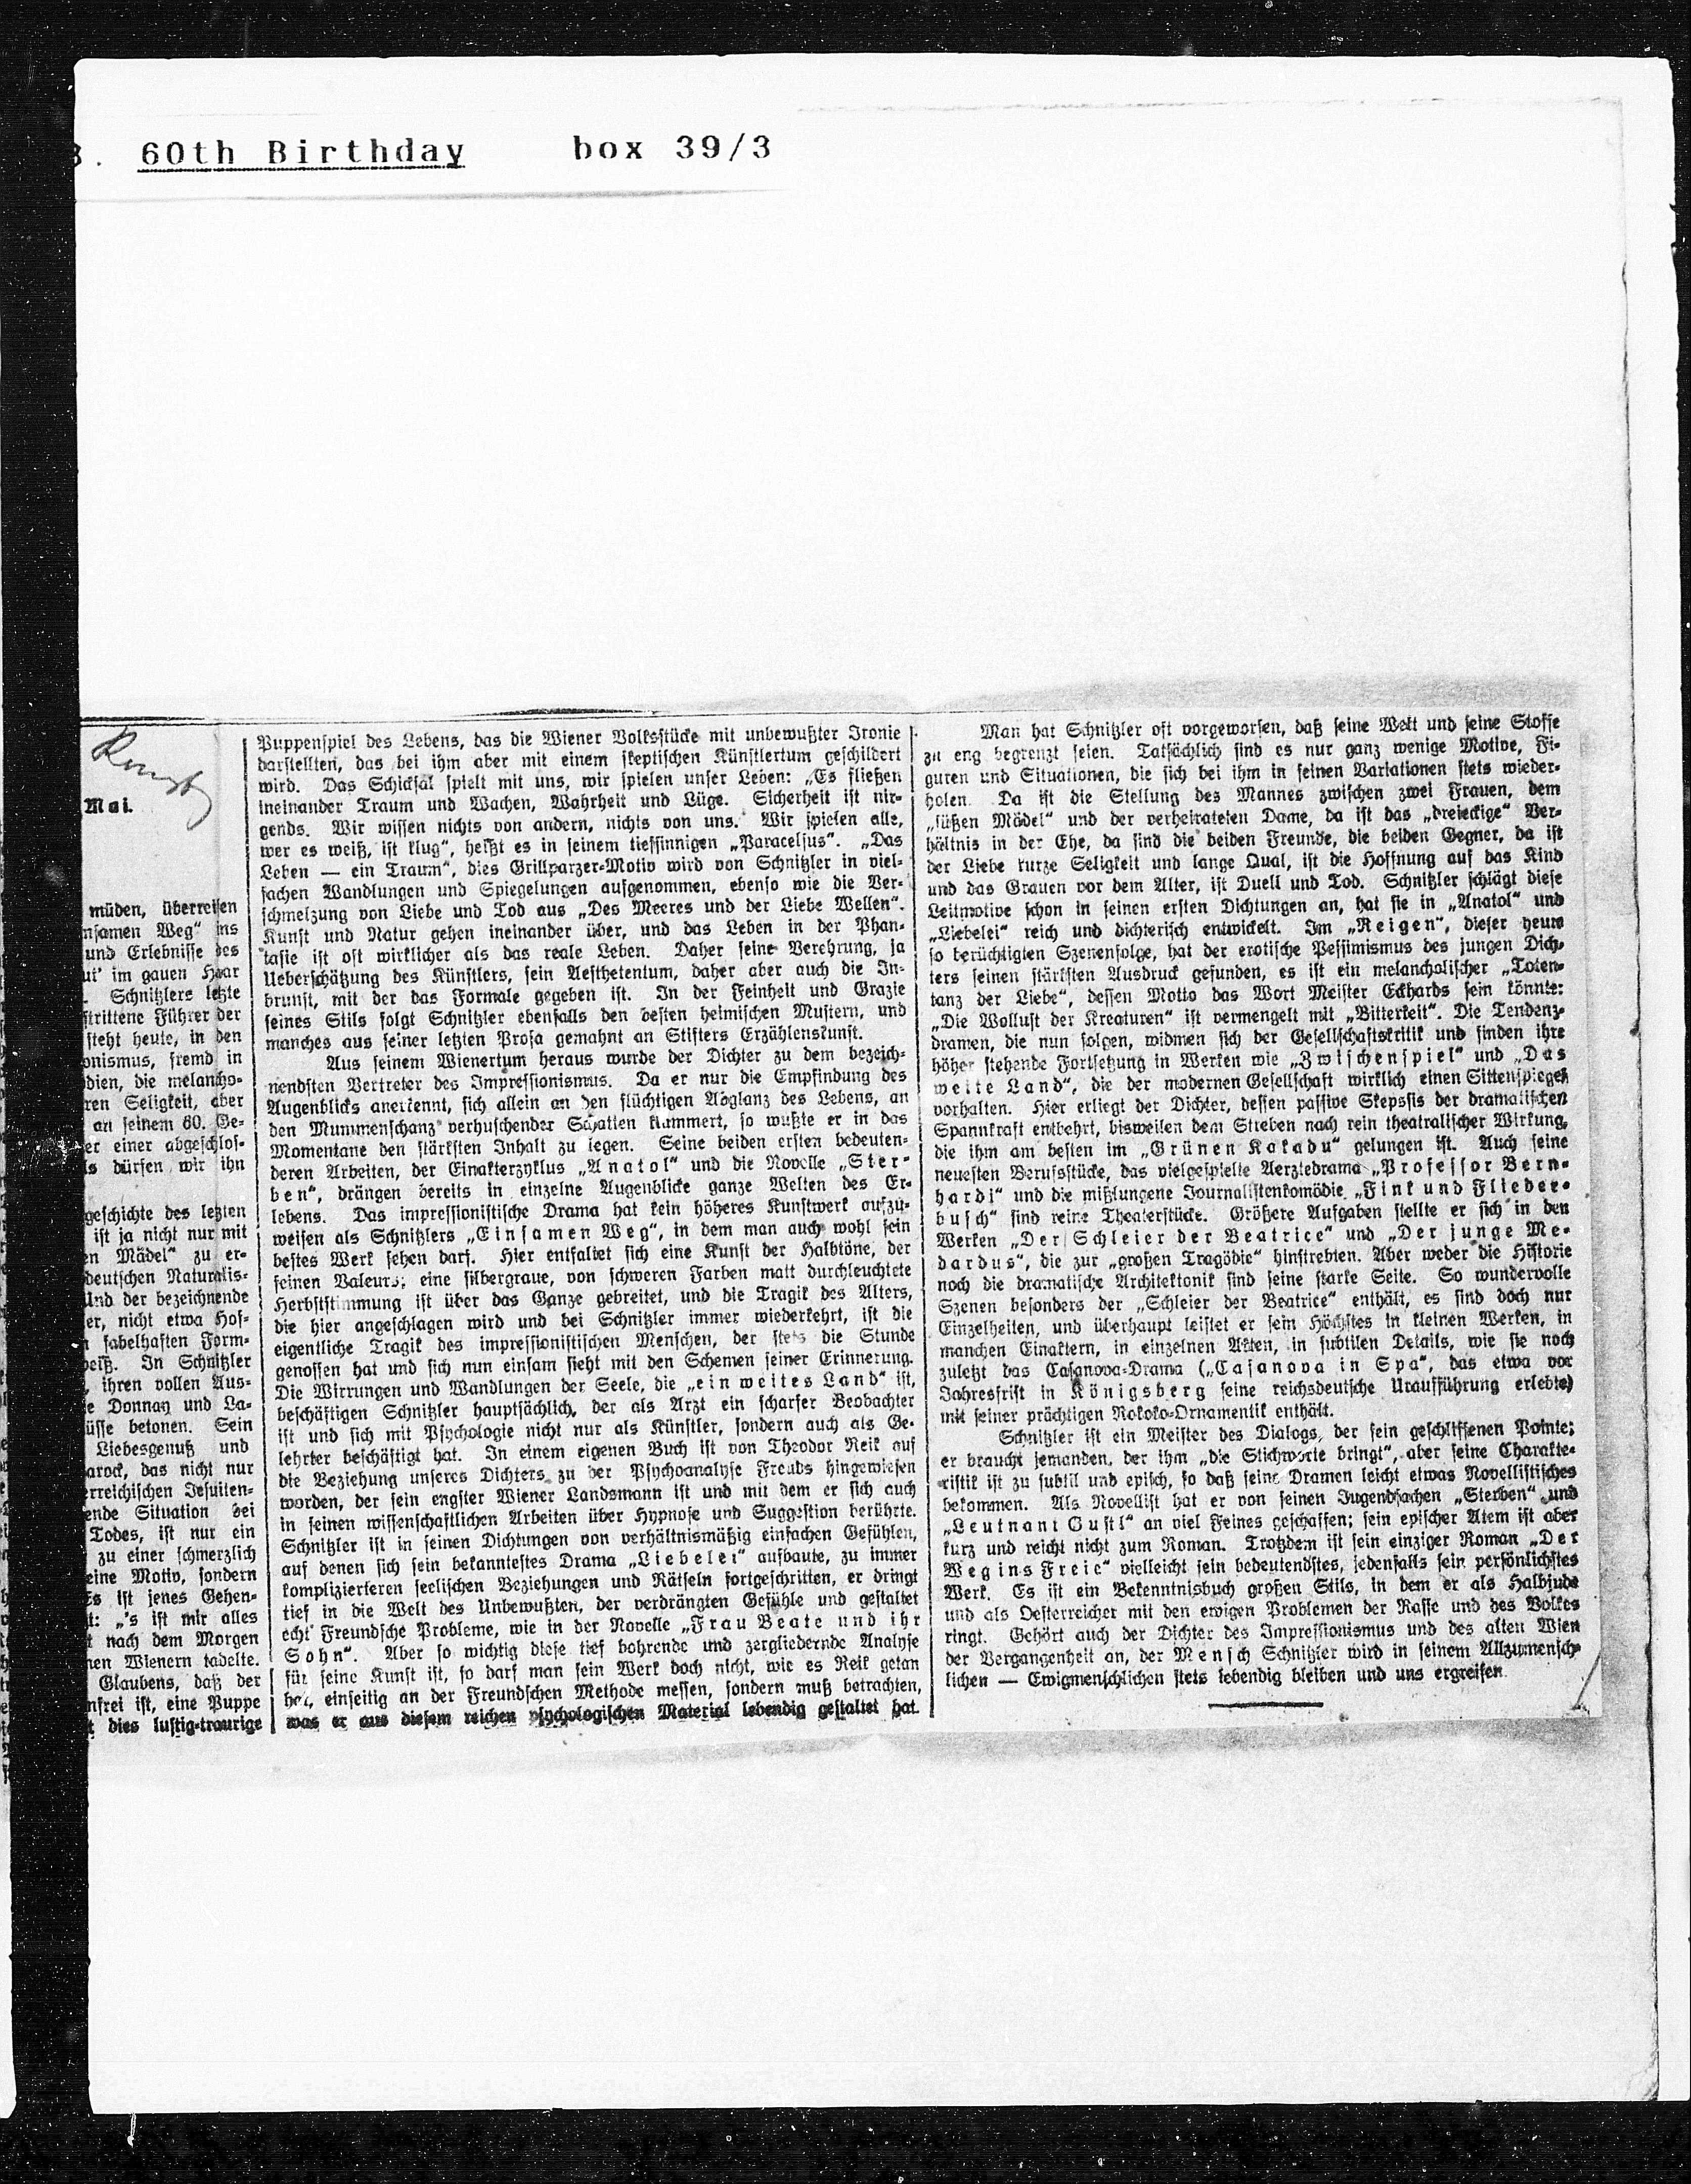 3. 60th Birthday box 39/3
Mai.
müden, überreifen
nsamen Weg“ ins
und Erlebnisse des
ut' im gauen Haar
Schnitzlers letzte
strittene Führer der
steht heute, in den
onismus, fremd in
dien, die melancho-
ren Seligkeit, aber
an seinem 60. Ge-
er einer abgeschlos-
ls dürfen wir ihn
geschichte des letzten
ist ja nicht nur mit
en Mädel“ zu er-
deutschen Naturalis-
Und der bezeichnende
er, nicht etwa Hof-
n fabelhaften Form-
weiß. In Schnitzler
, ihren vollen Aus-
e Donnay und La-
üsse betonen. Sein
Liebesgenuß und
arock, das nicht nur
erreichischen Jesuiten-
ende Situation bei
Todes, ist nur ein
zu einer schmerzlich
eine Motiv, sondern
Es ist jenes Gehen-
t: „'s ist mir alles
t nach dem Morgen
nen Wienern tadelte.
Glaubens, daß der
nfrei ist, eine Puppe
t dies lustig-traurige
Puppenspiel des Lebens, das die Wiener Volksstücke mit unbewußter Ironie
darstellten, das bei ihm aber mit einem skeptischen Künstlertum geschildert
wird. Das Schicksal spielt mit uns, wir spielen unser Leben: „Es fließen
ineinander Traum und Wachen, Wahrheit und Lüge. Sicherheit ist nir-
gends. Wir wissen nichts von andern, nichts von uns. Wir spielen alle,
wer es weiß, ist klug“, heißt es in seinem tiefsinnigen „Paracelsus“. „Das
Leben — ein Traum“, dies Grillparzer-Motiv wird von Schnitzler in viel-
fachen Wandlungen und Spiegelungen aufgenommen, ebenso wie die Ver-
schmelzung von Liebe und Tod aus „Des Meeres und der Liebe Wellen“.
Kunst und Natur gehen ineinander über, und das Leben in der Phan-
tasie ist oft wirklicher als das reale Leben. Daher seine Verehrung, ja
Ueberschätzung des Künstlers, sein Aesthetentum, daher aber auch die In-
brunst, mit der das Formale gegeben ist. In der Feinheit und Grazie
seines Stils folgt Schnitzler ebenfalls den besten heimischen Mustern, und
manches aus seiner letzten Prosa gemahnt an Stifters Erzählenskunst.
Aus seinem Wienertum heraus wurde der Dichter zu dem bezeich-
nendsten Vertreter des Impressionismus. Da er nur die Empfindung des
Augenblicks anerkennt, sich allein an den flüchtigen Abglanz des Lebens, an
den Mummenschanz verhuschender Schatten klammert, so wußte er in das
Momentane den stärksten Inhalt zu legen. Seine beiden ersten bedeuten-
deren Arbeiten, der Einakterzyklus „Anatol“ und die Novelle „Ster-
ben“, drängen bereits in einzelne Augenblicke ganze Welten des Er-
lebens. Das impressionistische Drama hat kein höheres Kunstwerk aufzu-
weisen als Schnitzlers „Einsamen Weg“, in dem man auch wohl sein
bestes Werk sehen darf. Hier entfaltet sich eine Kunst der Halbtöne, der
feinen Valeurs; eine silbergraue, von schweren Farben matt durchleuchtete
Herbststimmung ist über das Ganze gebreitet, und die Tragik des Alters,
die hier angeschlagen wird und bei Schnitzler immer wiederkehrt, ist die
eigentliche Tragik des impressionistischen Menschen, der stets die Stunde
genossen hat und sich nun einsam sieht mit den Schemen seiner Erinnerung.
Die Wirrungen und Wandlungen der Seele, die „ein weites Land“ ist,
beschäftigen Schnitzler hauptsächlich, der als Arzt ein scharfer Beobachter
ist und sich mit Psychologie nicht nur als Künstler, sondern auch als Ge-
lehrter beschäftigt hat. In einem eigenen Buch ist von Theodor Reik auf
die Beziehung unseres Dichters zu der Psychoanalyse Freuds hingewiesen
worden, der sein engster Wiener Landsmann ist und mit dem er sich auch
in seinen wissenschaftlichen Arbeiten über Hypnose und Suggestion berührte.
Schnitzler ist in seinen Dichtungen von verhältnismäßig einfachen Gefühlen,
auf denen sich sein bekanntestes Drama „Liebelei“ aufbaute, zu immer
komplizierteren seelischen Beziehungen und Rätseln fortgeschritten, er dringt
tief in die Welt des Unbewußten, der verdrängten Gefühle und gestaltet
echt Freundsche Probleme, wie in der Novelle „Frau Beate und ihr
Sohn“. Aber so wichtig diese tief bohrende und zergliedernde Analyse
für seine Kunst ist, so darf man sein Werk doch nicht, wie es Reik getan
hat, einseitig an der Freundschen Methode messen, sondern muß betrachten,
was er aus diesem reichen psychologischen Material lebendig gestaltet hat.
Man hat Schnitzler oft vorgeworfen, daß seine Welt und seine Stoffe
zu eng begrenzt seien. Tatsächlich sind es nur ganz wenige Motive, Fi-
guren und Situationen, die sich bei ihm in seinen Variationen stets wieder-
holen. Da ist die Stellung des Mannes zwischen zwei Frauen, dem
„süßen Mädel“ und der verheirateten Dame, da ist das „dreieckige“ Ver-
hältnis in der Ehe, da sind die beiden Freunde, die beiden Gegner, da ist
der Liebe kurze Seligkeit und lange Qual, ist die Hoffnung auf das Kind
und das Grauen vor dem Alter, ist Duell und Tod. Schnitzler schlägt diese
Leitmotive schon in seinen ersten Dichtungen an, hat sie in „Anatol“ und
„Liebelei“ reich und dichterisch entwickelt. Im „Reigen“, dieser heute
so berüchtigten Szenenfolge, hat der erotische Pessimismus des jungen Dich-
ters seinen stärksten Ausdruck gefunden, es ist ein melancholischer „Toten-
tanz der Liebe“, dessen Motto das Wort Meister Eckhards sein könnte:
„Die Wollust der Kreaturen“ ist vermengelt mit „Bitterkeit“. Die Tendenz-
dramen, die nun folgen, widmen sich der Gesellschaftskritik und finden ihre
höher stehende Fortsetzung in Werken wie „Zwischenspiel“ und „Das
weite Land“, die der modernen Gesellschaft wirklich einen Sittenspiegel
vorhalten. Hier erliegt der Dichter, dessen passive Skepsis der dramatischen
Spannkraft entbehrt, bisweilen dem Streben nach rein theatralischer Wirkung,
die ihm am besten im „Grünen Kakadu“ gelungen ist. Auch seine
neuesten Berufsstücke, das vielgespielte Aerztedrama „Professor Bern-
hardi“ und die mißlungene Journalistenkomödie „Fink und Flieder-
busch“ sind reine Theaterstücke. Größere Aufgaben stellte er sich in den
Werken „Der Schleier der Beatrice“ und „Der junge Me-
dardus“, die zur „großen Tragödie“ hinstrebten. Aber weder die Historie
noch die dramatische Architektonik sind seine starke Seite. So wundervolle
Szenen besonders der „Schleier der Beatrice“ enthält, es sind doch nur
Einzelheiten, und überhaupt leistet er sein Höchstes in kleinen Werken, in
manchen Einaktern, in einzelnen Akten, in subtilen Details, wie sie noch
zuletzt das Casanova-Drama („Casanova in Spa“, das etwa vor
Jahresfrist in Königsberg seine reichsdeutsche Uraufführung erlebte)
mit seiner prächtigen Rokoko-Ornamentik enthält.
Schnitzler ist ein Meister des Dialogs, der fein geschliffenen Pointe;
er braucht jemanden, der ihm „die Stichworte bringt“, aber seine Charakte-
ristik ist zu subtil und episch, so daß seine Dramen leicht etwas Novellistisches
bekommen. Als Novellist hat er von seinen Jugendsachen „Sterben“ und
„Leutnant Gustl“ an viel Feines geschaffen; sein epischer Atem ist aber
kurz und reicht nicht zum Roman. Trotzdem ist sein einziger Roman „Der
Weg ins Freie“ vielleicht sein bedeutendstes, jedenfalls sein persönlichstes
Werk. Es ist ein Bekenntnisbuch großen Stils, in dem er als Halbjude
und als Oesterreicher mit den ewigen Problemen der Rasse und des Volkes
ringt. Gehört auch der Dichter des Impressionismus und des alten Wien
der Vergangenheit an, der Mensch Schnitzler wird in seinem Allzumensch-
lichen — Ewigmenschlichen stets lebendig bleiben und uns ergreifen.